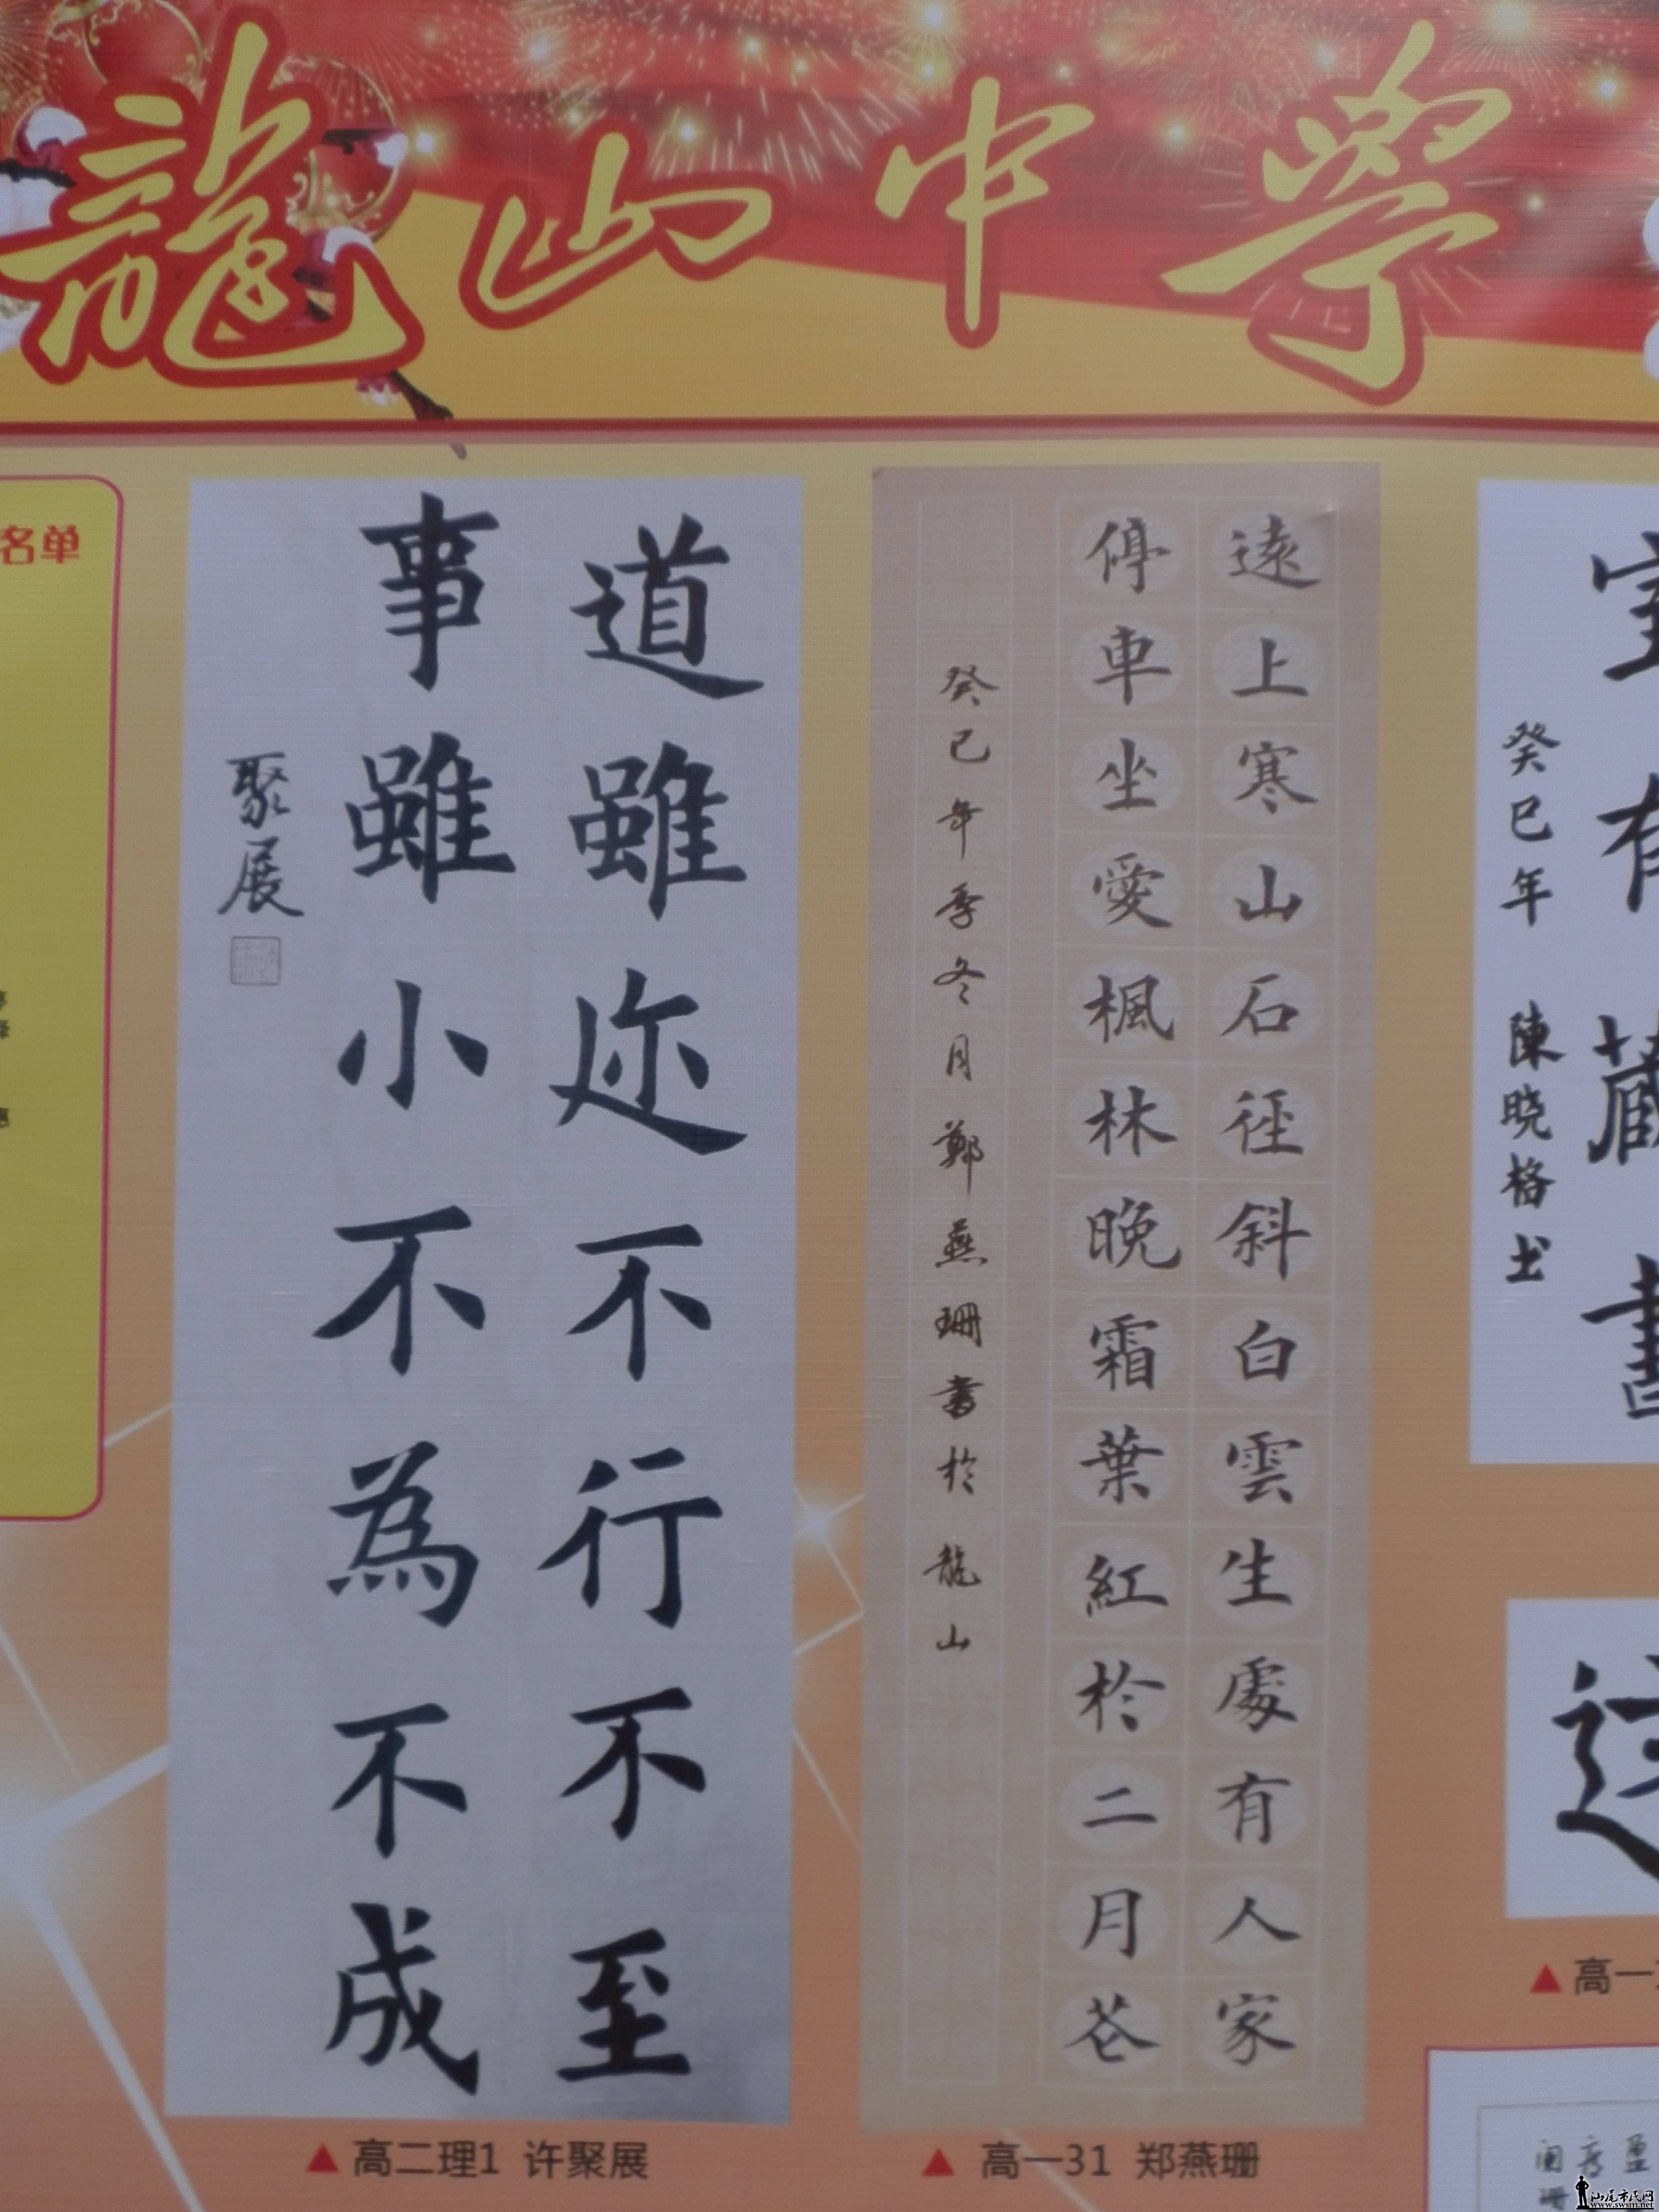 龍山中學
名单
道雖迩不行不至
事雖小不為不成
聚展
▲高二理1 许聚展
遠上寒山石徑斜白雲生處有人家
停車坐愛楓林晚霜葉紅於二月花
癸巳年季冬月鄭燕珊書於龍山
▲高一31 郑燕珊
室有藏書
癸巳年 陳晓格书
▲高一
汕尾市民网
www.swsm.net